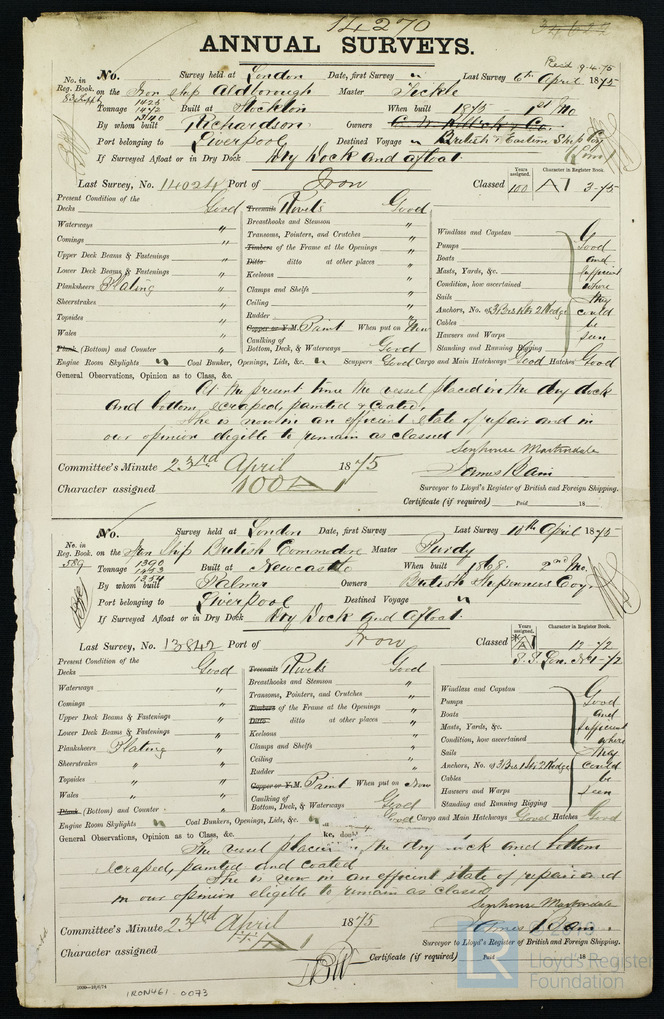 14270
ANNUAL SURVEYS.
Recd 9.4.75
No. Survey held at London Date, first Survey " Last Survey 6th April 1875
No. in Reg. Book. 83 Suppt on the Iron Ship Aldborough Master Tickle
Tonnage 1425 1472 1340 Built at Stockton When built 1875 - 1st Mo
By whom built Richardson Owners
Port belonging to Liverpool Destined Voyage " British & Eastern Ship Coy
If Surveyed Afloat or in Dry Dock Dry Dock and afloat. Limd
Last Survey, No. 14024 Port of Iron Classed Years assigned. 100 Character in Register Book. A1 3-75
Present Condition of the
Decks Good
Waterways "
Comings "
Upper Deck Beams & Fastenings "
Lower Deck Beams & Fastenings "
Planksheers Plating "
Sheerstrakes "
Topsides "
Wales "
Plank (Bottom) and Counter "
Treenails Rivets Good
Breasthooks and Stemson "
Transoms, Pointers, and Crutches "
Timbers of the Frame at the Openings "
Ditto ditto at other places "
Keelsons "
Clamps and Shelfs "
Ceiling "
Rudder "
Copper or Y.M. Paint When put on Now
Caulking of Bottom, Deck, & Waterways Good
Windlass and Capstan
Pumps
Boats
Masts, Yards, &c.
Condition, how ascertained
Sails
Anchors, No. of 3 Brs 1 Str 2 Kedge
Cables
Hawsers and Warps
Standing and Running Rigging
Good and sufficient where they could be seen
Engine Room Skylights " Coal Bunker, Openings, Lids, &c. " Scuppers Good Cargo and Main Hatchways Good Hatches Good
General Observations, Opinion as to Class, &c.
At the present time the vessel placed in the dry dock
and bottom scraped, painted & coated.
She is now in an efficient state of repair and in
our opinion eligible to remain as classed
Senhouse Martindale
James Bain
Committee's Minute 23rd April 1875
Character assigned 100 A1
Surveyor to Lloyd's Register of British and Foreign Shipping.
Certificate (if required) Paid 18
No. Survey held at London Date, first Survey Last Survey 10th April 1875
No. in Reg. Book. 589 on the Iron Ship British Commodore Master Purdy
Tonnage 1390 1453 1354 Built at Newcastle When built 1868. 2nd Mo.
By whom built Palmer Owners British Shipowners Coy.
Port belonging to Liverpool Destined Voyage "
If Surveyed Afloat or in Dry Dock Dry Dock and afloat.
Last Survey, No. 13842 Port of Iron Classed Years assigned. A1 Character in Register Book. 12-72
S.S. Lon. No1-72
Present Condition of the
Decks Good
Waterways "
Comings "
Upper Deck Beams & Fastenings "
Lower Deck Beams & Fastenings "
Planksheers Plating "
Sheerstrakes " "
Topsides " "
Wales " "
Plank (Bottom) and Counter "
Treenails Rivets Good
Breasthooks and Stemson "
Transoms, Pointers, and Crutches "
Timbers of the Frame at the Openings "
Ditto ditto at other places "
Keelsons "
Clamps and Shelfs "
Ceiling "
Rudder "
Copper or Y.M. Paint When put on Now
Caulking of Bottom, Deck, & Waterways Good
Windlass and Capstan
Pumps
Boats
Masts, Yards, &c.
Condition, how ascertained
Sails
Anchors, No. of 3 Brs 1 Str 2 Kedge
Cables
Hawsers and Warps
Standing and Running Rigging
Good and sufficient where they could be seen
Engine Room Skylights " Coal Bunkers, Openings, Lids, &c. " Good Cargo and Main Hatchways Good Hatches Good
General Observations, Opinion as to Class, &c.
The vessel placed in the dry dock and bottom
scraped, painted and coated
She is now in an efficient state of repair and
in our opinion eligible to remain as classed
Senhouse Martindale
James Bain.
Committee's Minute 23rd April 1875
Character assigned
Surveyor to Lloyd's Register of British and Foreign Shipping.
Certificate (if required) Paid 18
IRON461-0073
© 2019
LR
Lloyd's Register
Foundation